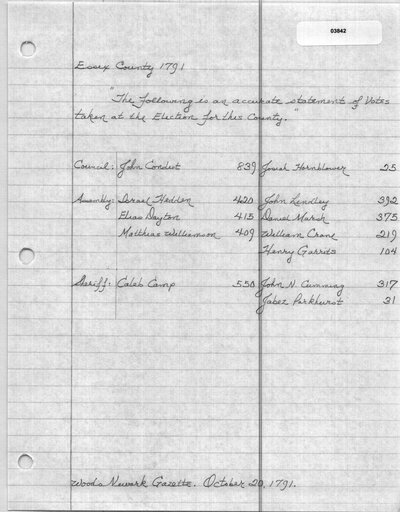 03842
Essex County 1791
"The following is an accurate statement of Votes
taken at the Election for this County."
Council: John Condict 839 Josiah Hornblower 25
Assembly: Israel Hedden 420 John Lindley 392
Elias Dayton 415 Daniel Marsh 375
Matthias Williamson 409 William Crane 219
Henry Garrits 104
Sheriff: Caleb Camp 550 John N. Cumming 317
Jabez Parkhurst 31
Woods Newark Gazette. October 20, 1791.